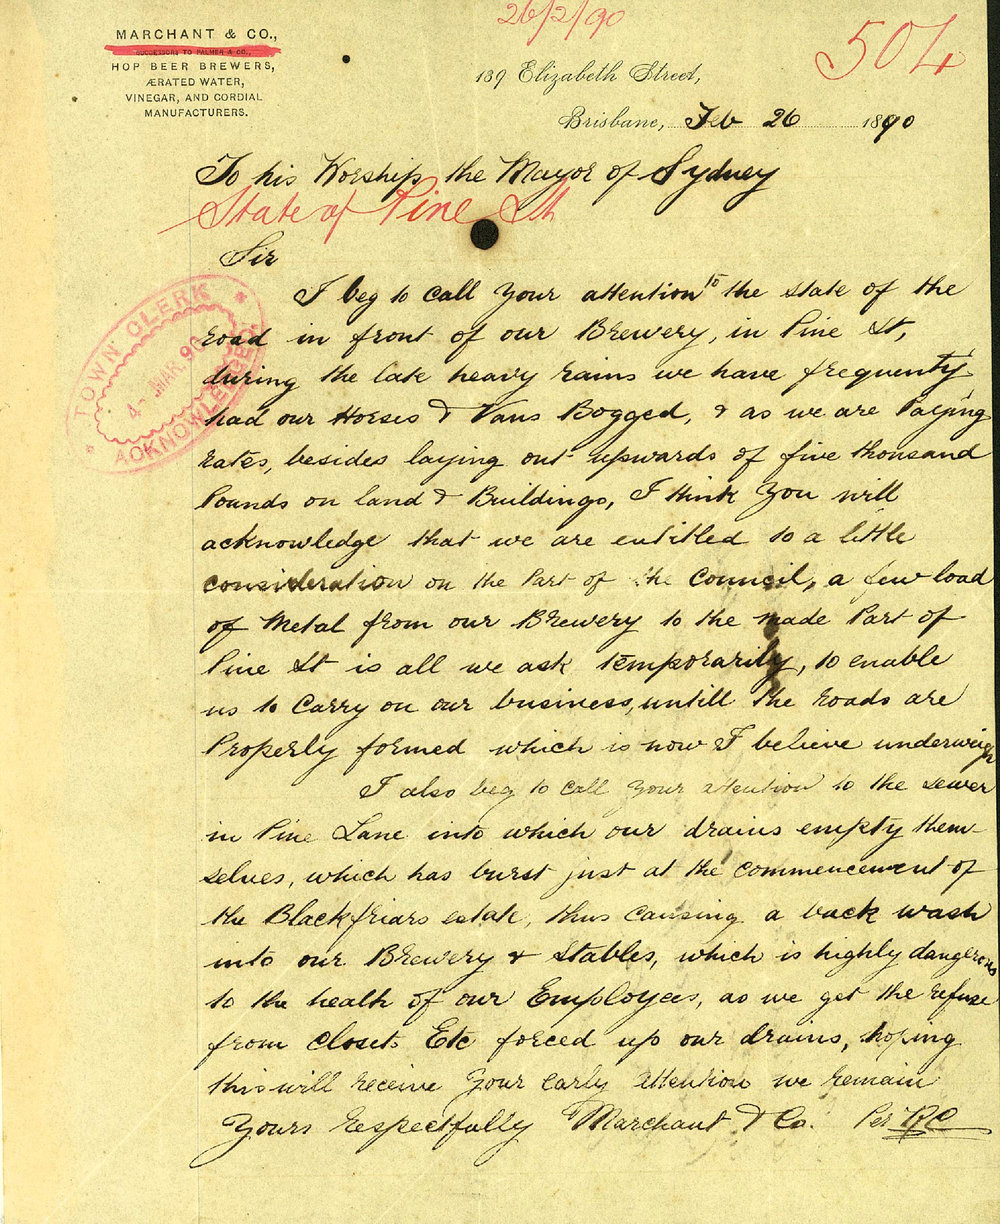 26/2/90
504
MARCHANT & CO.,
SUCCESSORS TO PALMER & CO.,
HOP BEER BREWERS,
ÆRATED WATER,
VINEGAR, AND CORDIAL
MANUFACTURERS.
139 Elizabeth Street,
Brisbane, Feb 26 1890
To his Worship the Mayor of Sydney
State of Pine St
Sir
TOWN CLERK
4- MAR. 90
ACKNOWLEDGED
I beg to call your attention to the state of the
road in front of our Brewery, in Pine St,
during the late heavy rains we have frequenty
had our Horses & Vans Bogged, & as we are Paying
rates, besides laying out upwards of five thousand
Pounds on land & Buildings, I think you will
acknowledge that we are entitled to a little
consideration on the Part of the Council, a few load
of Metal from our Brewery to the made Part of
Pine St is all we ask temporarily, to enable
us to Carry on our business, untill the roads are
Properly formed which is now I believe underweigh
I also beg to call your attention to the sewer
in Pine Lane into which our drains empty them-
selves, which has burst just at the commencement of
the Blackfriars estate, thus causing a back wash
into our Brewery & Stables, which is highly dangerous
to the health of our Employees, as we get the refuse
from closets Etc forced up our drains, hoping
this will receive your early attention we remain
Yours Respectfully Marchant & Co. Per RC